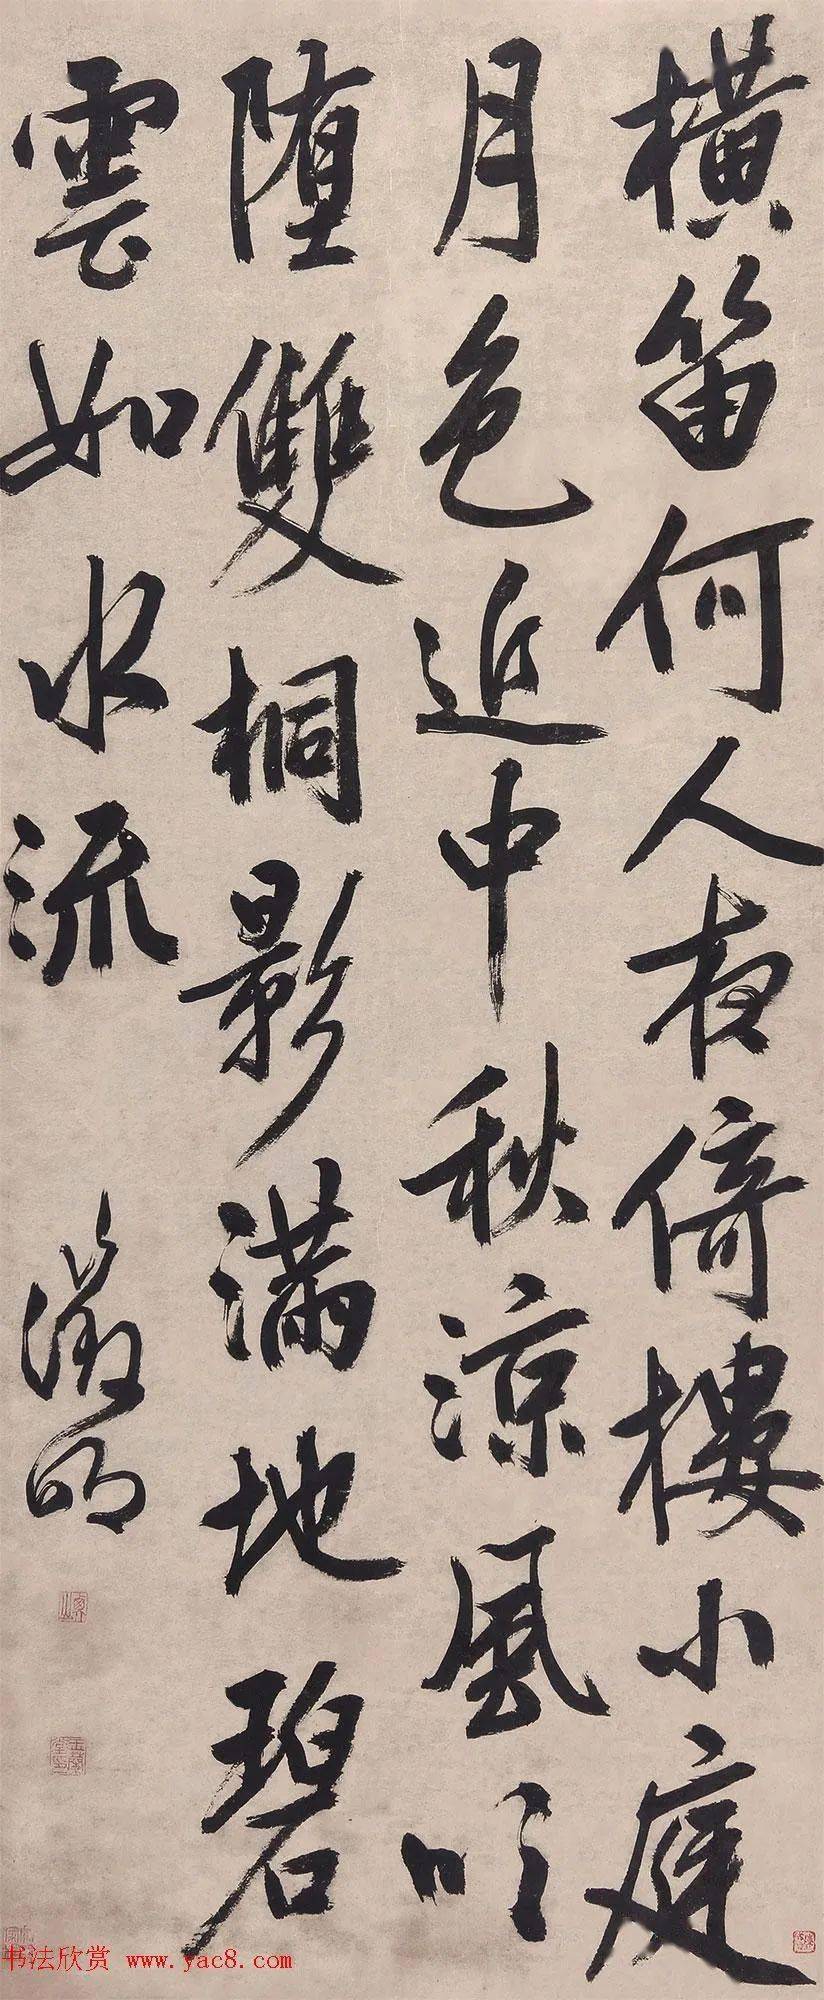 橫笛何人夜倚樓小庭
月色近中秋涼風吹
堕雙桐影滿地碧
雲如水流
徵明
玉蘭堂印
书法欣赏 www.yac8.com